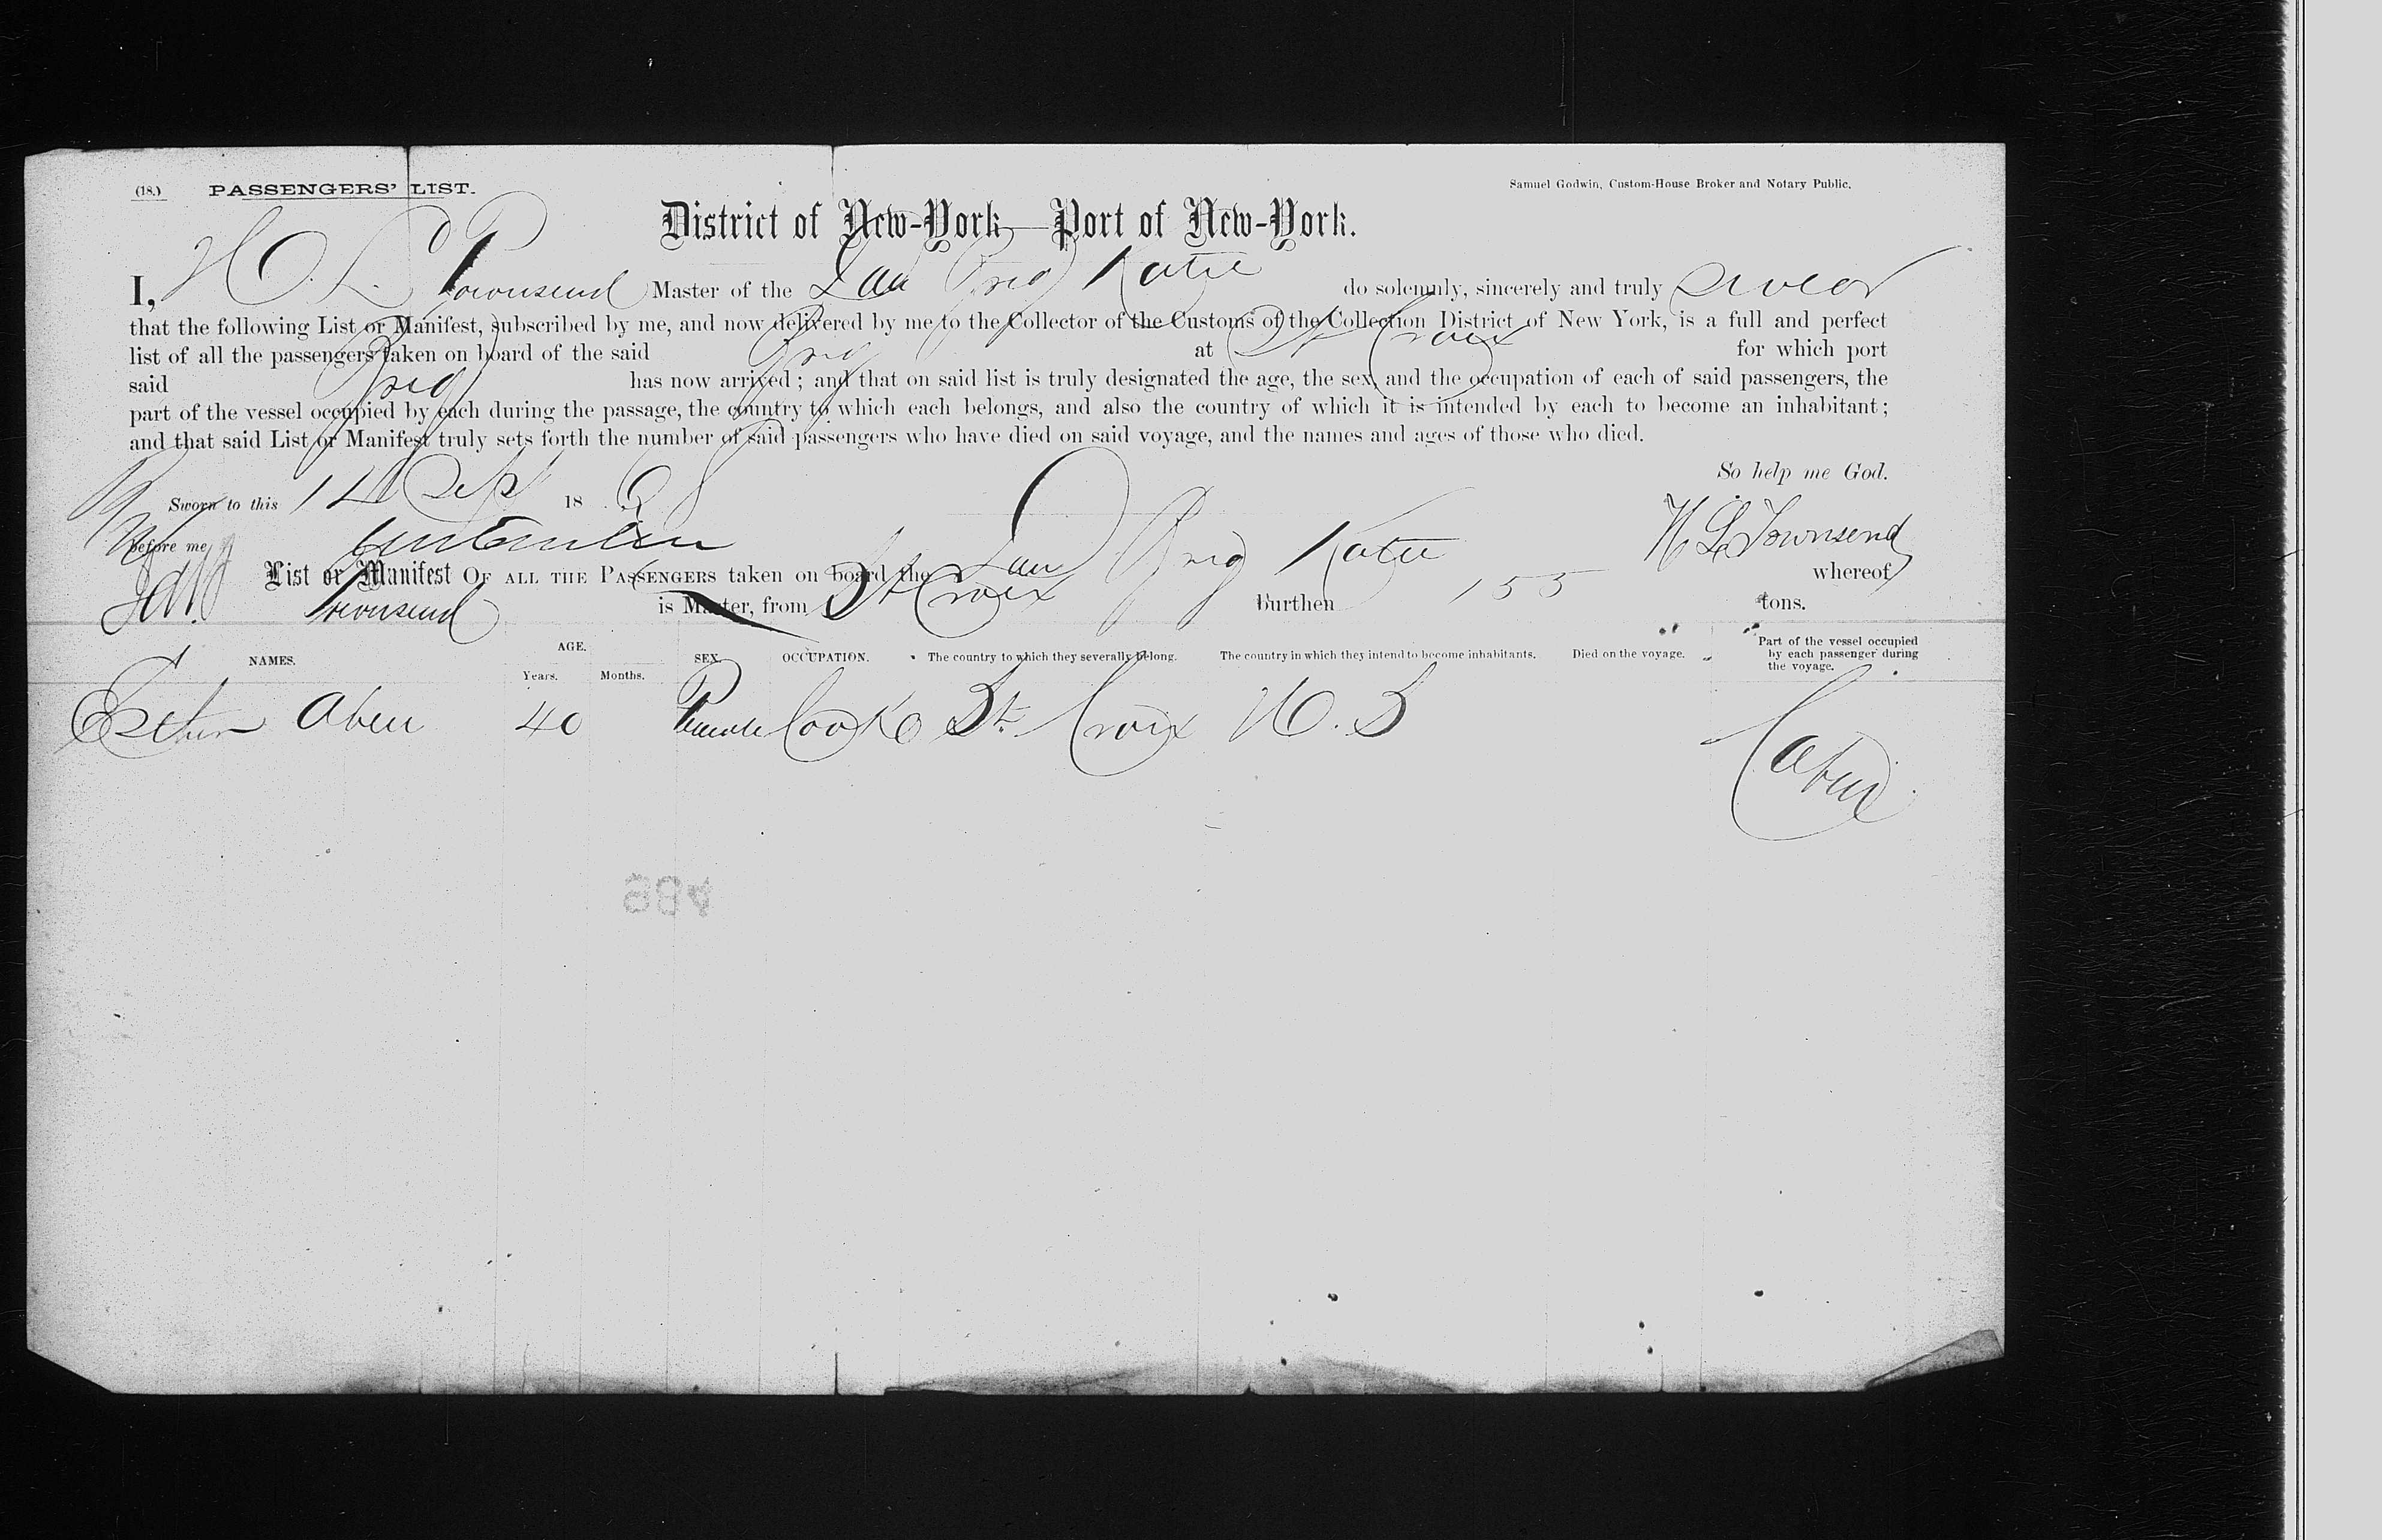 (18.) PASSENGERS' LIST.
Samuel Godwin, Custom-House Broker and Notary Public.
District of New-York—Port of New-York.
I, Townsend Master of the Brig Katie do solemnly, sincerely and truly swear
that the following List or Manifest, subscribed by me, and now delivered by me to the Collector of the Customs of the Collection District of New York, is a full and perfect
list of all the passengers taken on board of the said Brig at St Croix for which port
said Brig has now arrived; and that on said list is truly designated the age, the sex, and the occupation of each of said passengers, the
part of the vessel occupied by each during the passage, the country to which each belongs, and also the country of which it is intended by each to become an inhabitant;
and that said List or Manifest truly sets forth the number of said passengers who have died on said voyage, and the names and ages of those who died.
So help me God.
Sworn to this 14 Sep 18
before me
H L Townsend
List or Manifest OF ALL THE PASSENGERS taken on board the Brig Katie whereof
Townsend is Master, from St Croix burthen 155 tons.
NAMES. AGE. Years. Months. SEX. OCCUPATION. The country to which they severally belong. The country in which they intend to become inhabitants. Died on the voyage. Part of the vessel occupied by each passenger during the voyage.
Esther Aben 40 Female Cook St. Croix U.S Cabin